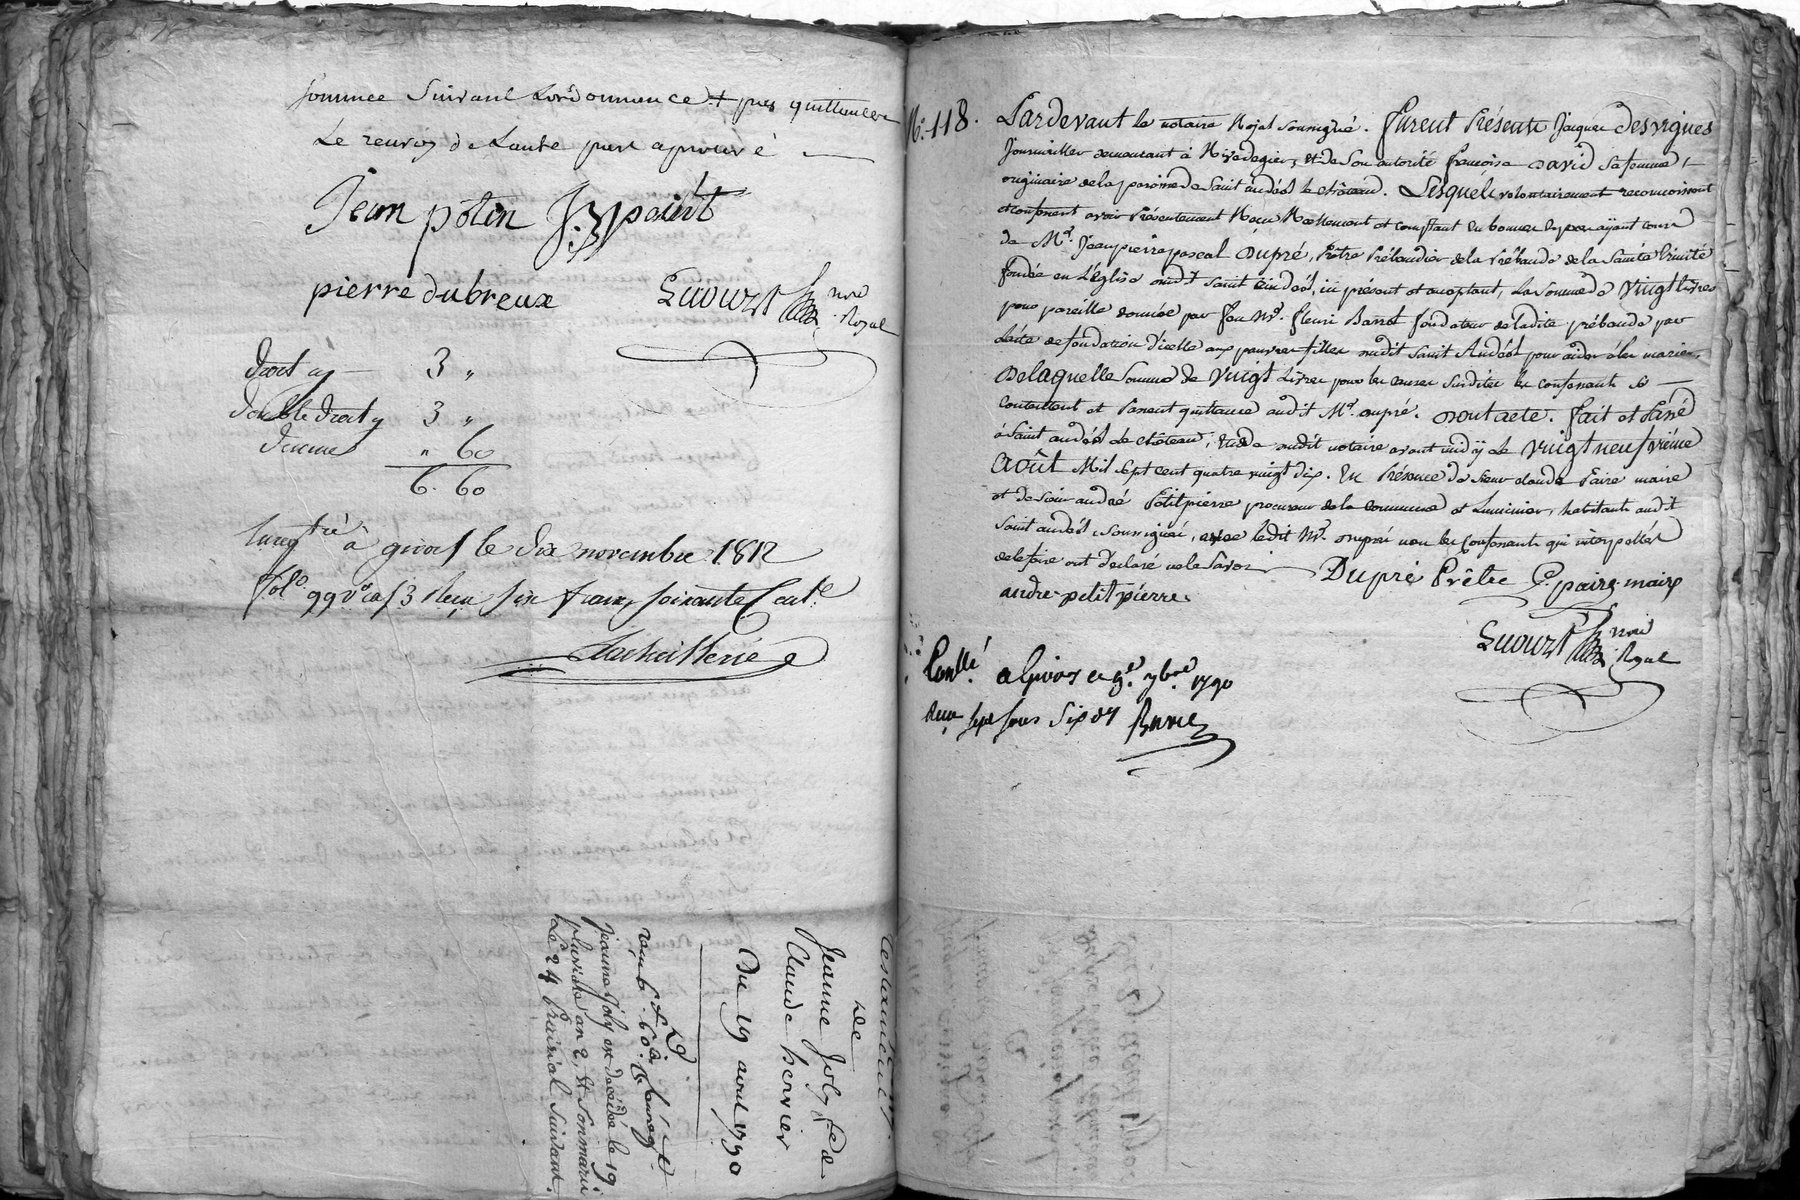 somme suivant Lordonnance + pres quittance
Le renvoy de Lautre part aprouvé
Jean potin
pierre dubreux
nre
Royal
Droit 3 "
Double Droit 3 "
" 60
6. 60
Enregtré à givors le dix novembre 1812
folo 99 vo Ca 3 Reçu six francs soixante Cente
Testament
De
Jeanne Joly fe de
Claude hervier
Du 19 avril 1790
Jeanne Joly est décédée le 19
pluviose an 2, et Son mari
Le 24 Prairial Suivant.
No. 118. Pardevant le notaire Royal soussigné. furent Présents Jacques desvignes
Journaillier demeurant à Rivedegier, et de son autorité françoise David sa femme,
originaire de la paroisse de Saint andéol le château. Lesquels volontairement reconnoissent
et confessent avoir présentement Reçu Réellement et comptant en bonnes especes ayant cours
de Mr. Jean pierre pascal Dupré, Prêtre Prébandier de la Prébande de la Sainte Trinité
fondée en L'Eglise dudit Saint Andéol, ici présent et acceptant, La Somme de Vingt Livres
pour pareille donnée par feu Mr. fleuri Barrot fondateur de ladite prébande par
L'acte de fondation d'icelle aux pauvres filles dudit Saint Andéol pour aider à les marier,
De laquelle Somme de Vingt Livres pour les causes Susdites les confessants se
contentent et Passent quittance audit Mr. Dupré. Dont acte. fait et Passé
à Saint andéol le château, Etude dudit notaire avant midy le Vingt neuf vième
Août Mil sept cent quatre vingt dix. En Présence de Sieur claude Paire maire
et de sieur andré Petitpierre procureur de la commune et Luminier, habitants audit
Saint andéol soussignés, avec ledit Mr. Dupré non les Confessants qui interpellés
de le faire ont déclaré ne le Savoir
Dupré Prêtre C. paire maire
andre petit pierre
nre
Royal
Conllé a Givors ce 9e. 7bre. 1790
Reçu sept sous six drs